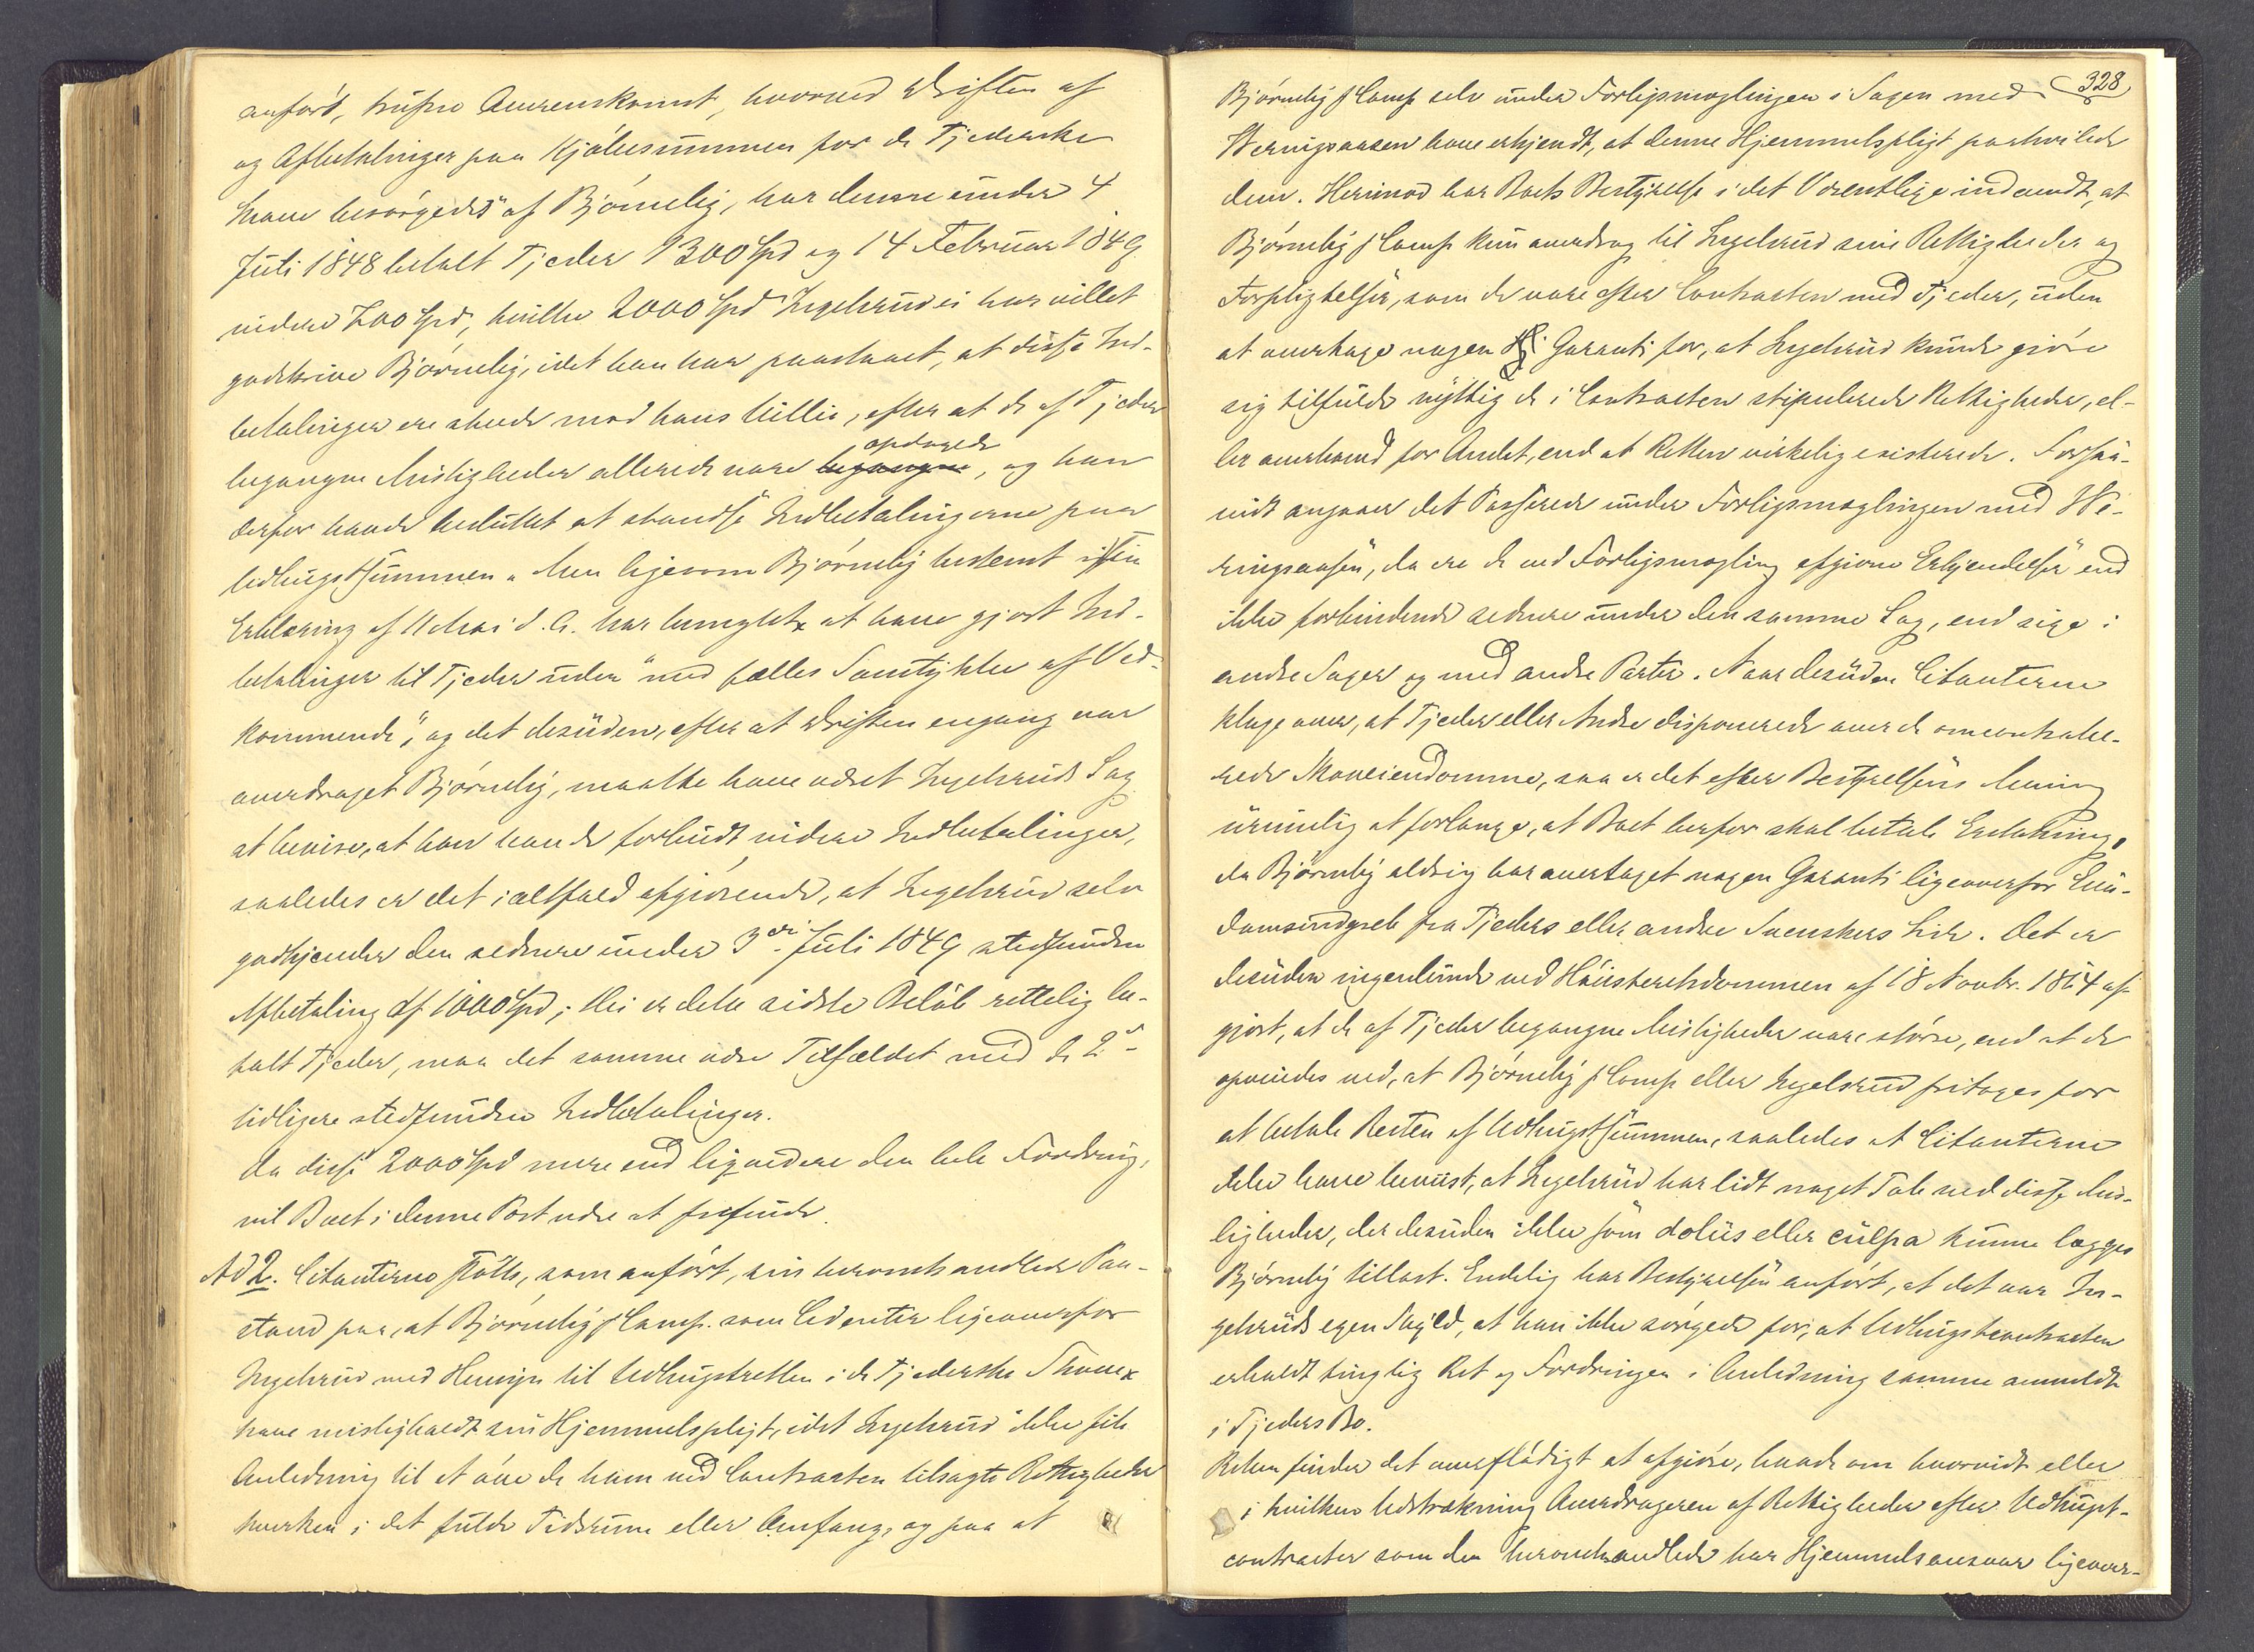 anført, trufne Overenskomst, hvorved Driften af
og Afbetalinger paa Kjøbesummen for de Tjederske
Skove besørgedes af Bjørneby, har denne under 4
Juli 1848 betalt Tjeder 1300 Spd og 14 Februar 1849
videre 700 Spd, hvilke 2000 Spd Ingelsrud ei har villet
godskrive Bjørneby, idet han har paastaaet, at disse Ind-
betalinger ere skeede mod hans Villie, efter at de af Tjeder
begangne Misligheder allerede vare opdagede, og han
derfor havde besluttet at standse Indbetalingerne paa
Udhugstsummen. Men ligesom Bjørneby bestemt i sin
Erklæring af 11 Mai d. A. har benægtet at have gjort Ind-
betalinger til Tjeder uden "med fælles Samtykke af Ved-
kommende", og det desuden, efter at Driften engang var
overdraget Bjørneby, maatte have været Ingelsruds Sag
at bevise, at han havde forbudt videre Indbetalinger,
saaledes er det i altfald afgjørende, at Ingelsrud selv
godkjender den sednere under 3die Juli 1849 stedfundne
Afbetaling af 1000 Spd; thi er dette sidste Beløb rettelig be-
talt Tjeder, maa det samme være Tilfældet med de 2de
tidligere stedfundne Indbetalinger.
Da disse 2000 Spd mere end liqvidere den hele Fordring,
vil Boet i denne Post være at frifinde.
Ad 2. Citanterne støtte, som anført, sin heromhandlede Paa-
stand paa, at Bjørneby & Comp. som Cedenter ligeoverfor
Ingelsrud med Hensyn til Udhugstretten i de Tjederske Skove
have misligholdt sin Hjemmelspligt, idet Ingelsrud ikke fik
Anledning til at øve de ham ved Contracten tilsagte Rettigheder
hverken i det fulde Tidsrum eller Omfang, og paa at
328
Bjørneby & Comp selv under Forligsmæglingen i Sagen med
Weringsaasen have erkjendt, at denne Hjemmelspligt paahvilede
dem. Herimod har Boets Bestyrelse i det Væsentlige indvendt, at
Bjørneby & Comp kun overdrog til Ingelsrud sine Rettigheder og
Forpligtelser, som de vare efter Contracten med Tjeder, uden
at overtage nogen Garanti for, at Ingelsrud kunde gjøre
sig tilfulde nyttig de i Contracten stipulerede Rettigheder, el-
ler overhoved for Andet, end at Retten virkelig existerede. Forsaa-
vidt angaaer det Passerede under Forligsmæglingen med We-
ringsaasen, da ere de ved Forligsmægling afgivne Erkjendelser end
ikke forbindende sednere under den samme Sag, end sige i
andre Sager og med andre Parter. Naar desuden Citanterne
klage over, at Tjeder eller Andre disponerede over de omcontrahe-
rede Skoveiendomme, saa er det efter Bestyrelsens Mening
urimelig at forlange, at Boet herfor skal betale Erstatning,
da Bjørneby aldrig har overtaget nogen Garanti ligeoverfor Eien-
domsindgreb fra Tjeders eller andre Svenskers Side. Det er
desuden ingenlunde ved Høiesteretsdommen af 18 Novbr. 1864 af-
gjort, at de af Tjeder begangne Misligheder vare større, end at de
opveiedes ved, at Bjørneby & Comp eller Ingelsrud fritages for
at betale Resten af Udhugstsummen, saaledes at Citanterne
ikke have beviist, at Ingelsrud har lidt noget Tab ved disse Mis-
ligheder, der desuden ikke som dolus eller culpa kunne lægges
Bjørneby tillast. Endelig har Bestyrelsen anført, at det var In-
gelsruds egen Skyld, at han ikke sørgede for, at Udhugstcontracten
erholdt tinglig Ret og Fordringen i Anledning samme anmeldt
i Tjeders Bo.
Retten finder det overflødigt at afgjøre, baade om hvorvidt eller
i hvilken Udstrækning Overdrageren af Rettigheder efter Udhugst-
contracter som den heromhandlede har Hjemmelsansvar ligeover-